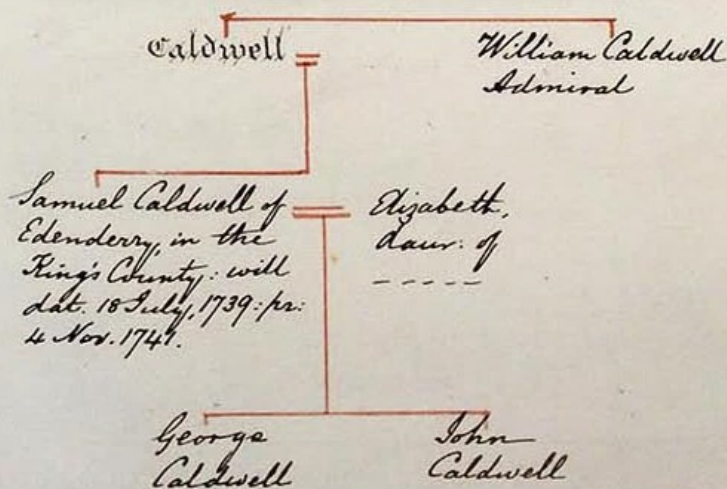 Caldwell
William Caldwell
Admiral
Samuel Caldwell of
Edenderry, in the
King's County: will
dat. 18 July, 1739: pr:
4 Nov. 1741.
Elizabeth,
daur: of
-----
George
Caldwell
John
Caldwell